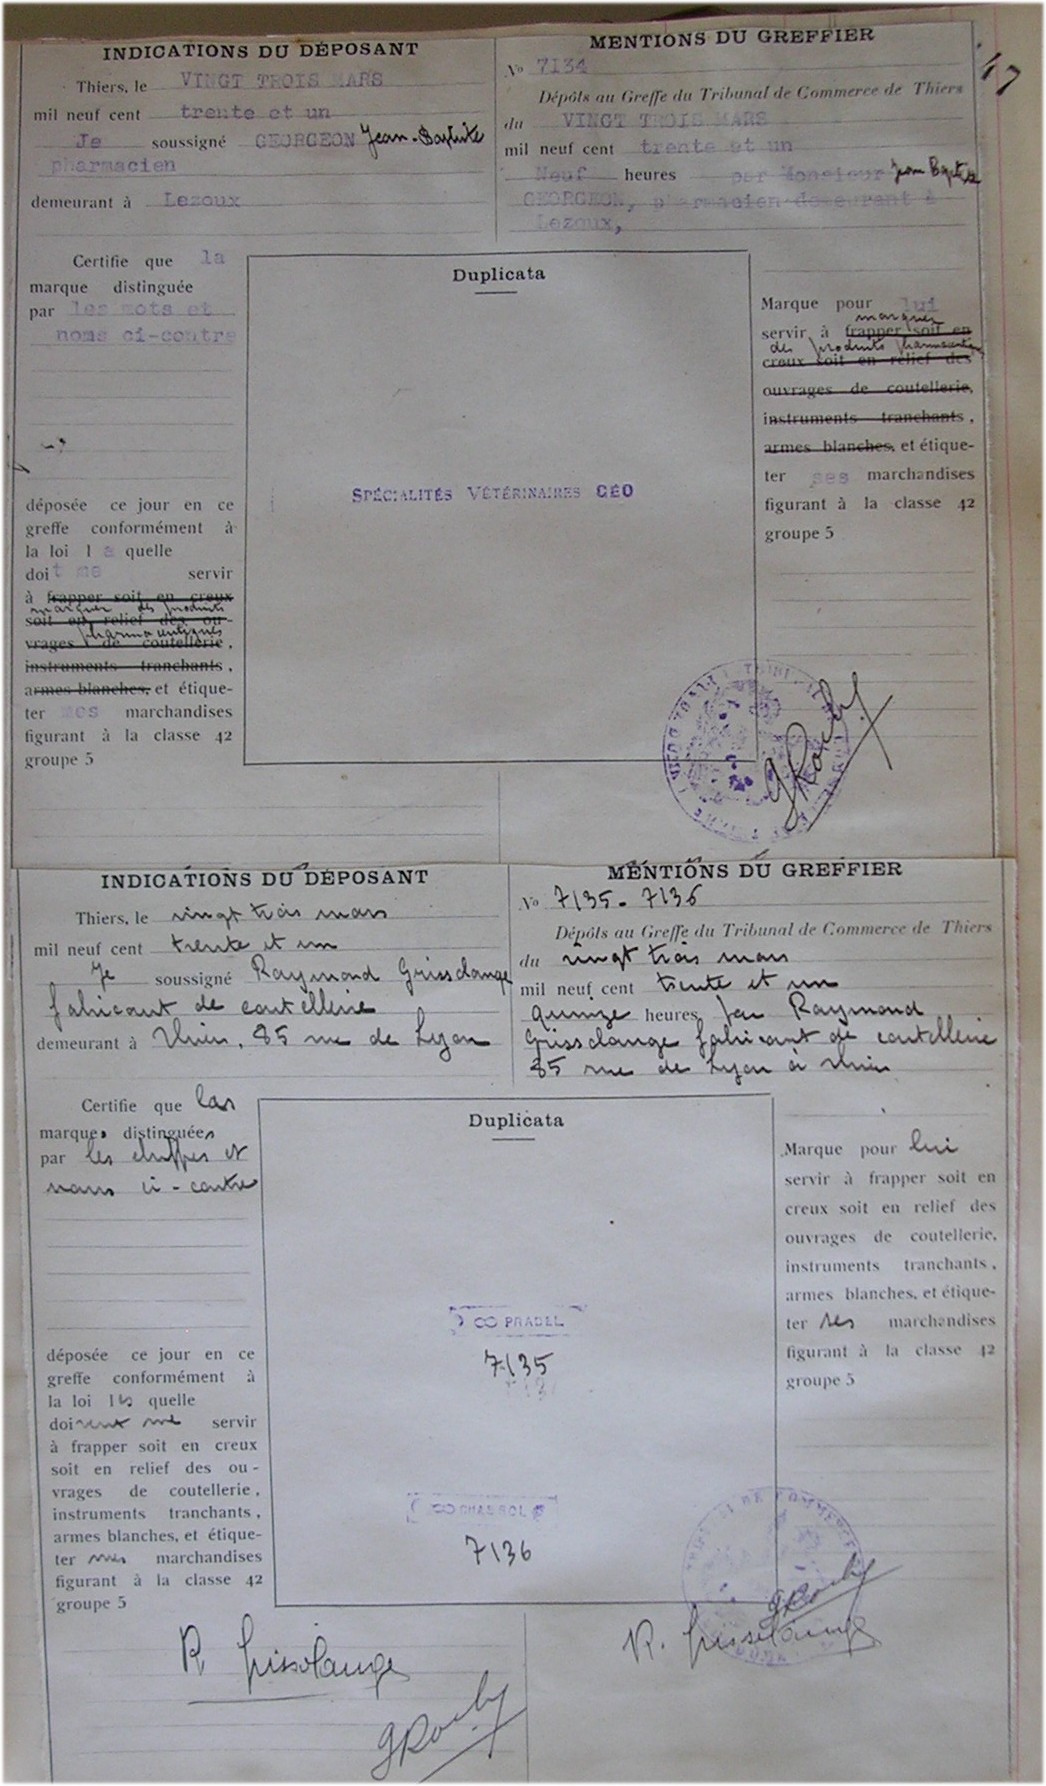 INDICATIONS DU DÉPOSANT
Thiers, le VINGT TROIS MARS
mil neuf cent trente et un
Je soussigné GEORGEON Jean-Baptiste
pharmacien
demeurant à Lezoux
MENTIONS DU GREFFIER
47
No 7134
Dépôts au Greffe du Tribunal de Commerce de Thiers
du VINGT TROIS MARS
mil neuf cent trente et un
Neuf heures par Monsieur Jean Baptiste
GEORGEON, pharmacien demeurant à
Lezoux,
Certifie que la
marque distinguée
par les mots et
noms ci-contre
déposée ce jour en ce
greffe conformément à
la loi la quelle
doit me servir
à frapper soit en creux
marquer des produits
soit en relief des ou-
pharmaceutiques
vrages de coutellerie,
instruments tranchants,
armes blanches, et étique-
ter mes marchandises
figurant à la classe 42
groupe 5
Duplicata
SPÉCIALITÉS VÉTÉRINAIRES GÉO
Marque pour lui
marquer
servir à frapper soit en
des produits pharmaceutiques
creux soit en relief des
ouvrages de coutellerie,
instruments tranchants,
armes blanches, et étique-
ter ses marchandises
figurant à la classe 42
groupe 5
INDICATIONS DU DÉPOSANT
Thiers, le vingt trois mars
mil neuf cent trente et un
Je soussigné Raymond Grissolange
fabricant de coutellerie
demeurant à Thiers, 85 rue de Lyon
MENTIONS DU GREFFIER
No 7135 - 7136
Dépôts au Greffe du Tribunal de Commerce de Thiers
du vingt trois mars
mil neuf cent trente et un
quinze heures, par Raymond
Grissolange fabricant de coutellerie
85 rue de Lyon à Thiers
Certifie que les
marques distinguées
par les chiffres et
noms ci-contre
déposée ce jour en ce
greffe conformément à
la loi les quelle
doivent me servir
à frapper soit en creux
soit en relief des ou-
vrages de coutellerie,
instruments tranchants,
armes blanches, et étique-
ter mes marchandises
figurant à la classe 42
groupe 5
Duplicata
PRADEL
7135
CHABROL
7136
Marque pour lui
servir à frapper soit en
creux soit en relief des
ouvrages de coutellerie,
instruments tranchants,
armes blanches, et étique-
ter ses marchandises
figurant à la classe 42
groupe 5
TRIBUNAL DE COMMERCE
R. Grissolange
R. Grissolange